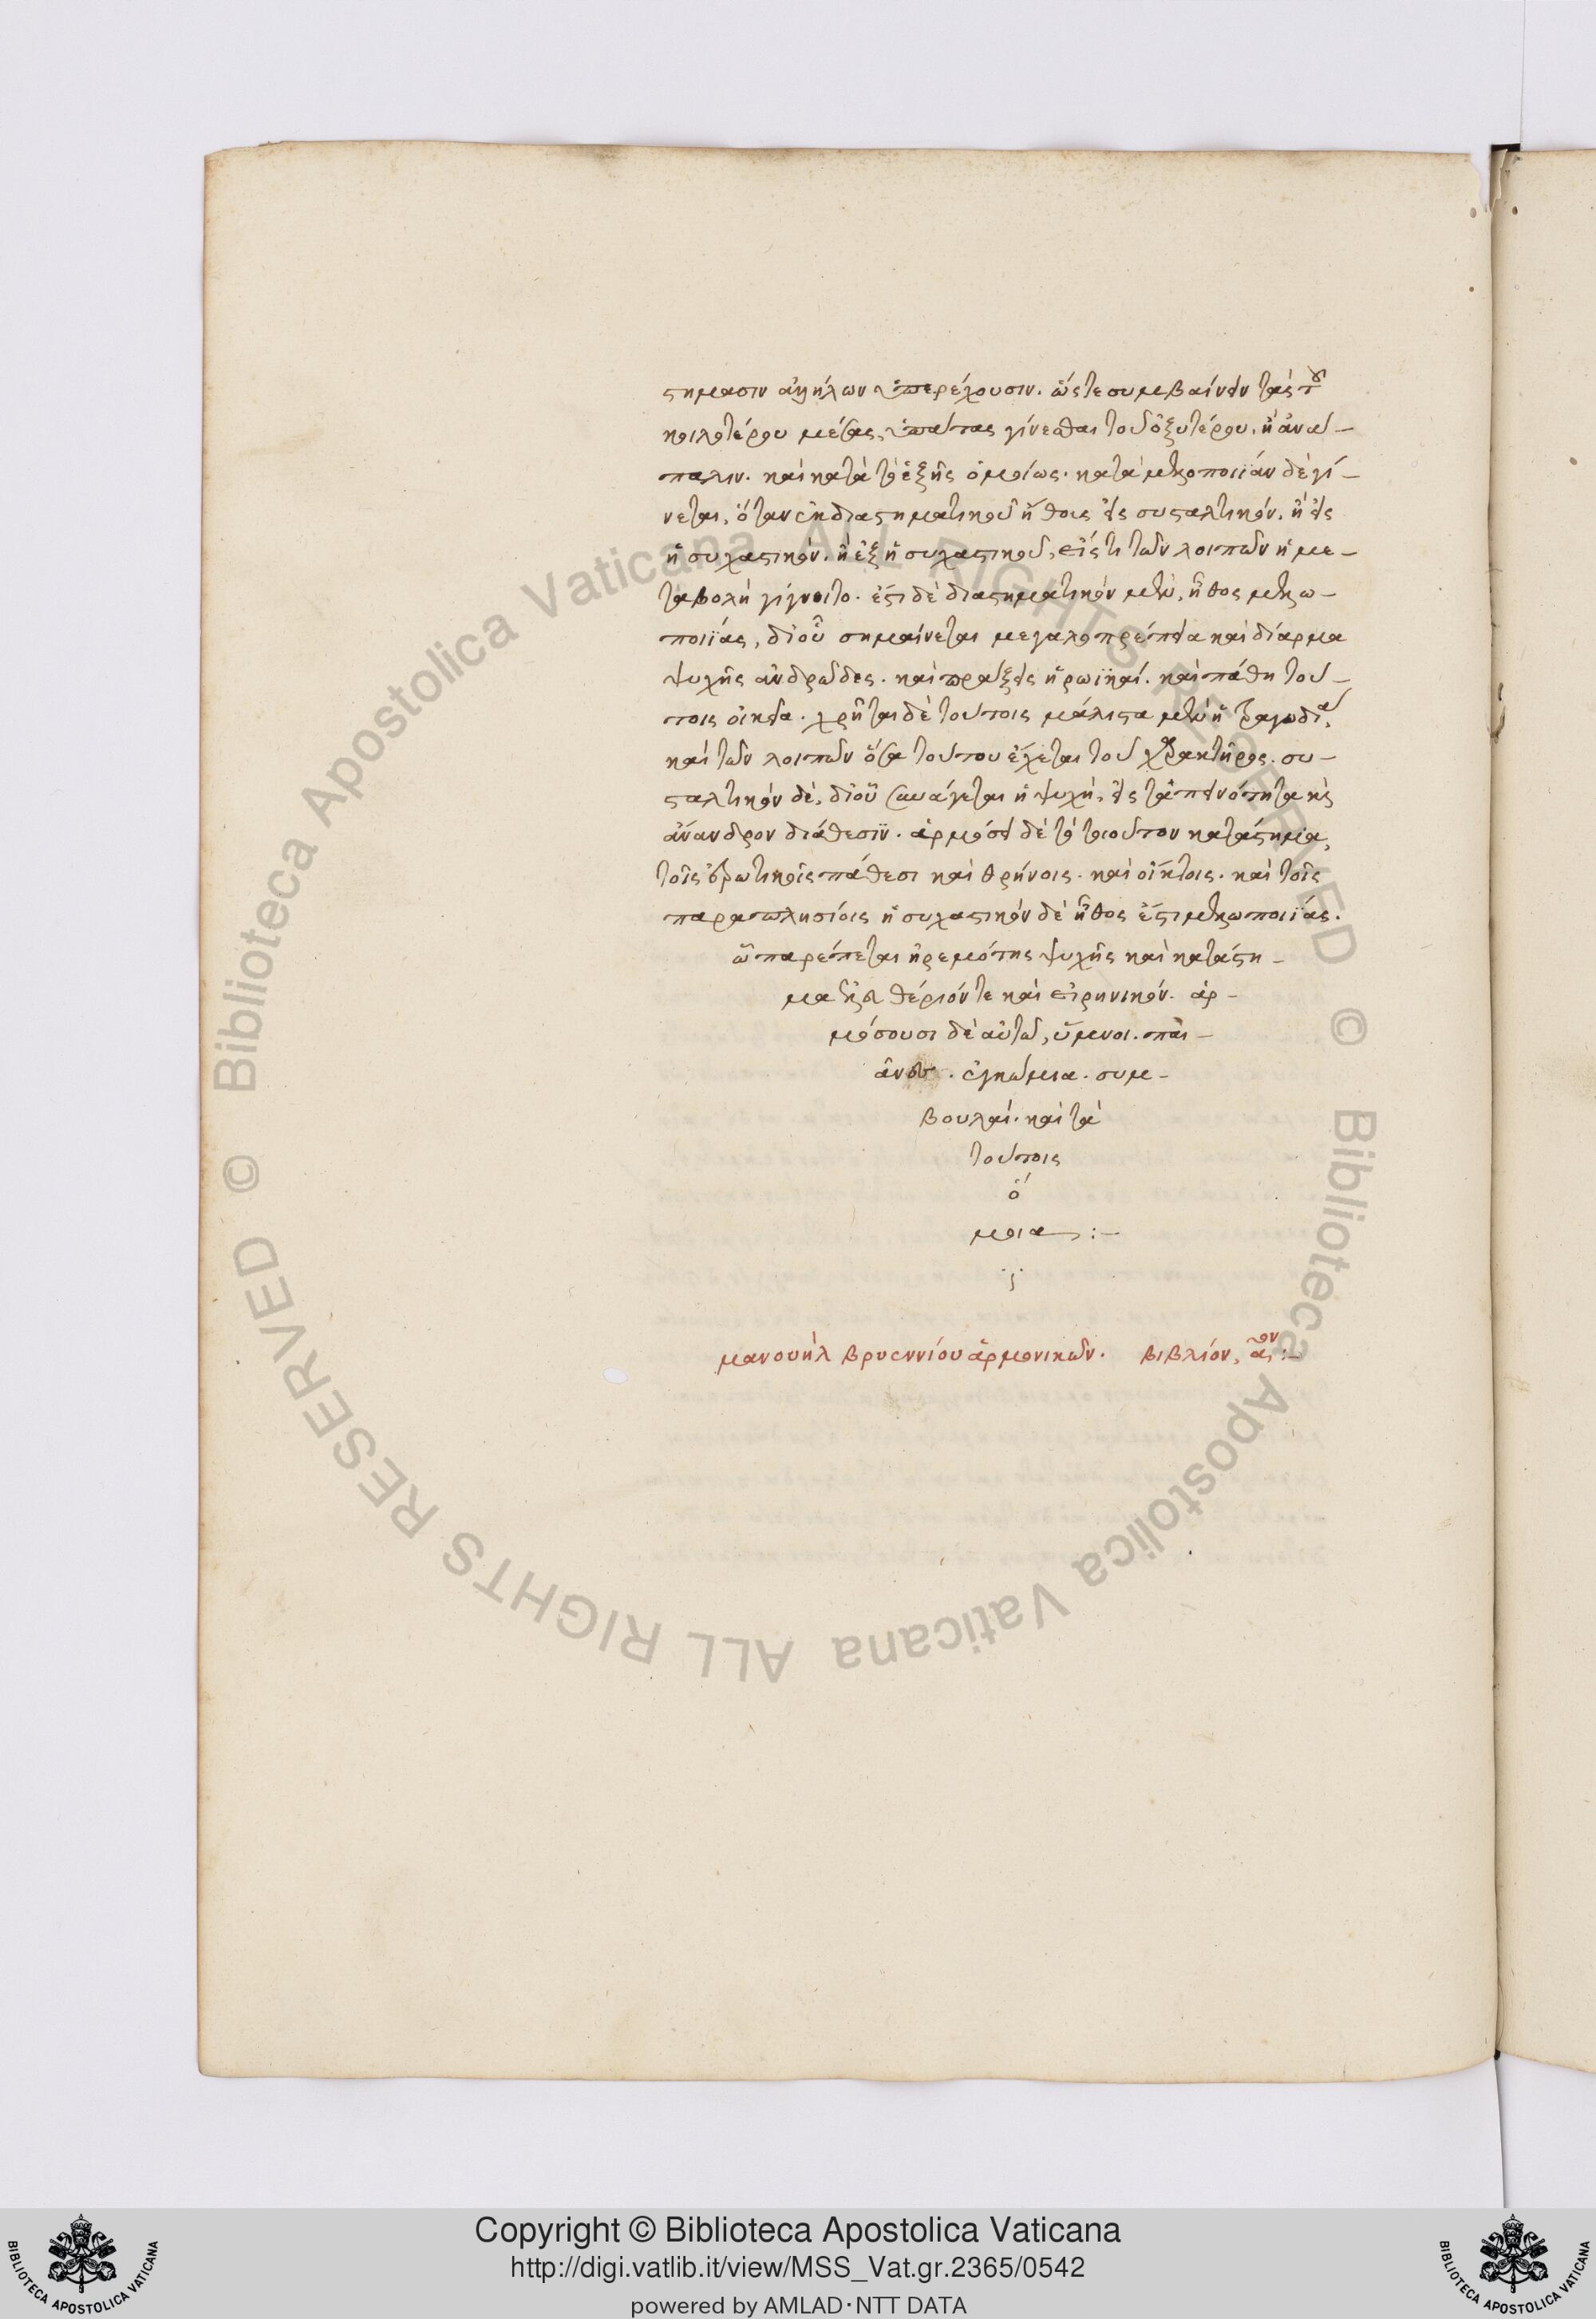 στήμασιν ἀλλήλων ὑπερέχουσιν. ὥστε συμβαίνειν τὰς τοῦ
κοιλοτέρου μέσας, ὑπάτας γίνεσθαι τοῦ ὀξυτέρου. ἢ ἀνά-
παλιν. καὶ κατὰ τὸ ἑξῆς ὁμοίως. κατὰ μελοποιΐαν δὲ γί-
νεται, ὅταν ἐκ διαστηματικοῦ ἤθους εἰς συσταλτικόν. ἢ εἰς
ἡσυχαστικόν. ἢ ἐξ ἡσυχαστικοῦ, εἴς τι τῶν λοιπῶν ἡ με-
ταβολὴ γίγνοιτο. ἔστι δὲ διαστηματικὸν μὲν, ἦθος μελω-
ποιΐας, δι' οὗ σημαίνεται μεγαλοπρέπεια καὶ δίαρμα
ψυχῆς ἀνδρῶδες. καὶ πράξεις ἡρωϊκαί. καὶ πάθη τού-
τοις οἰκεῖα. χρῆται δὲ τούτοις μάλιστα μὲν ἡ τραγωδία,
καὶ τῶν λοιπῶν ὅσα τούτου ἔχεται τοῦ χαρακτῆρος. συ-
σταλτικὸν δὲ, δι' οὗ συνάγεται ἡ ψυχὴ, εἰς ταπεινότητα καὶ
ἄνανδρον διάθεσιν. ἁρμόσει δὲ τὸ τοιοῦτον κατάστημα,
τοῖς ἐρωτικοῖς πάθεσι καὶ θρήνοις. καὶ οἴκτοις. καὶ τοῖς
παραπλησίοις ἡσυχαστικὸν δὲ ἦθος ἔστι μελωποιΐας.
ᾧ παρέπεται ἠρεμότης ψυχῆς καὶ κατάστη-
μα ἐλευθέριόν τε καὶ εἰρηνικόν. ἁρ-
μόσουσι δὲ αὐτῷ, ὕμνοι. παι-
ᾶνες. ἐγκώμια. συμ-
βουλαί. καὶ τὰ
τούτοις
ὅ
μοια :-
μανουὴλ βρυεννίου ἁρμονικῶν. βιβλίον, αον :-
© Biblioteca Apostolica Vaticana ALL RIGHTS RESERVED © Biblioteca Apostolica Vaticana ALL RIGHTS RESERVED
Copyright © Biblioteca Apostolica Vaticana
http://digi.vatlib.it/view/MSS_Vat.gr.2365/0542
powered by AMLAD·NTT DATA
BIBLIOTECA APOSTOLICA VATICANA
BIBLIOTECA APOSTOLICA VATICANA